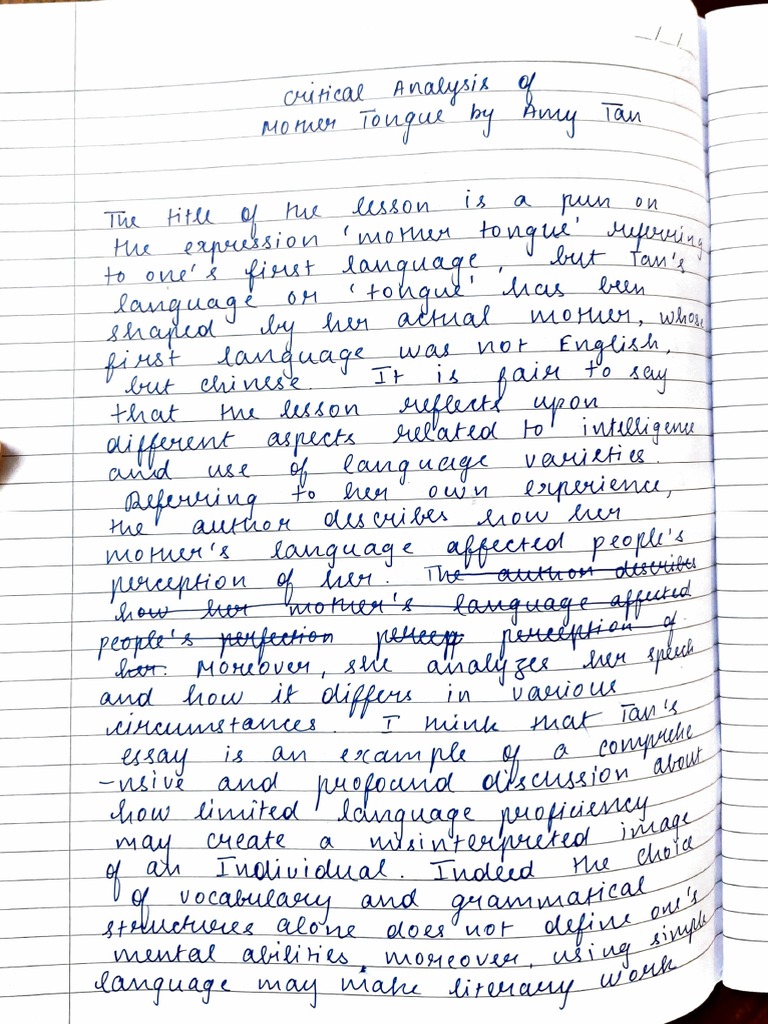 Critical Analysis of
Mother Tongue by Amy Tan
The title of the lesson is a pun on
the expression 'mother tongue' referring
to one's first language, but Tan's
language or 'tongue' has been
shaped by her actual mother, whose
first language was not English,
but chinese. It is fair to say
that the lesson reflects upon
different aspects related to intelligence
and use of language varieties.
Referring to her own experience,
the author describes how her
mother's language affected people's
perception of her. The author describes
how her mother's language affected
people's perfection percepp perception of
her. Moreover, she analyzes her speech
and how it differs in various
circumstances. I think that Tan's
essay is an example of a comprehe
-nsive and profound discussion about
how limited language proficiency
may create a misinterpreted image
of an Individual. Indeed the choice
of vocabulary and grammatical
structures alone does not define one's
mental abilities, moreover, using simple
language may make literary work